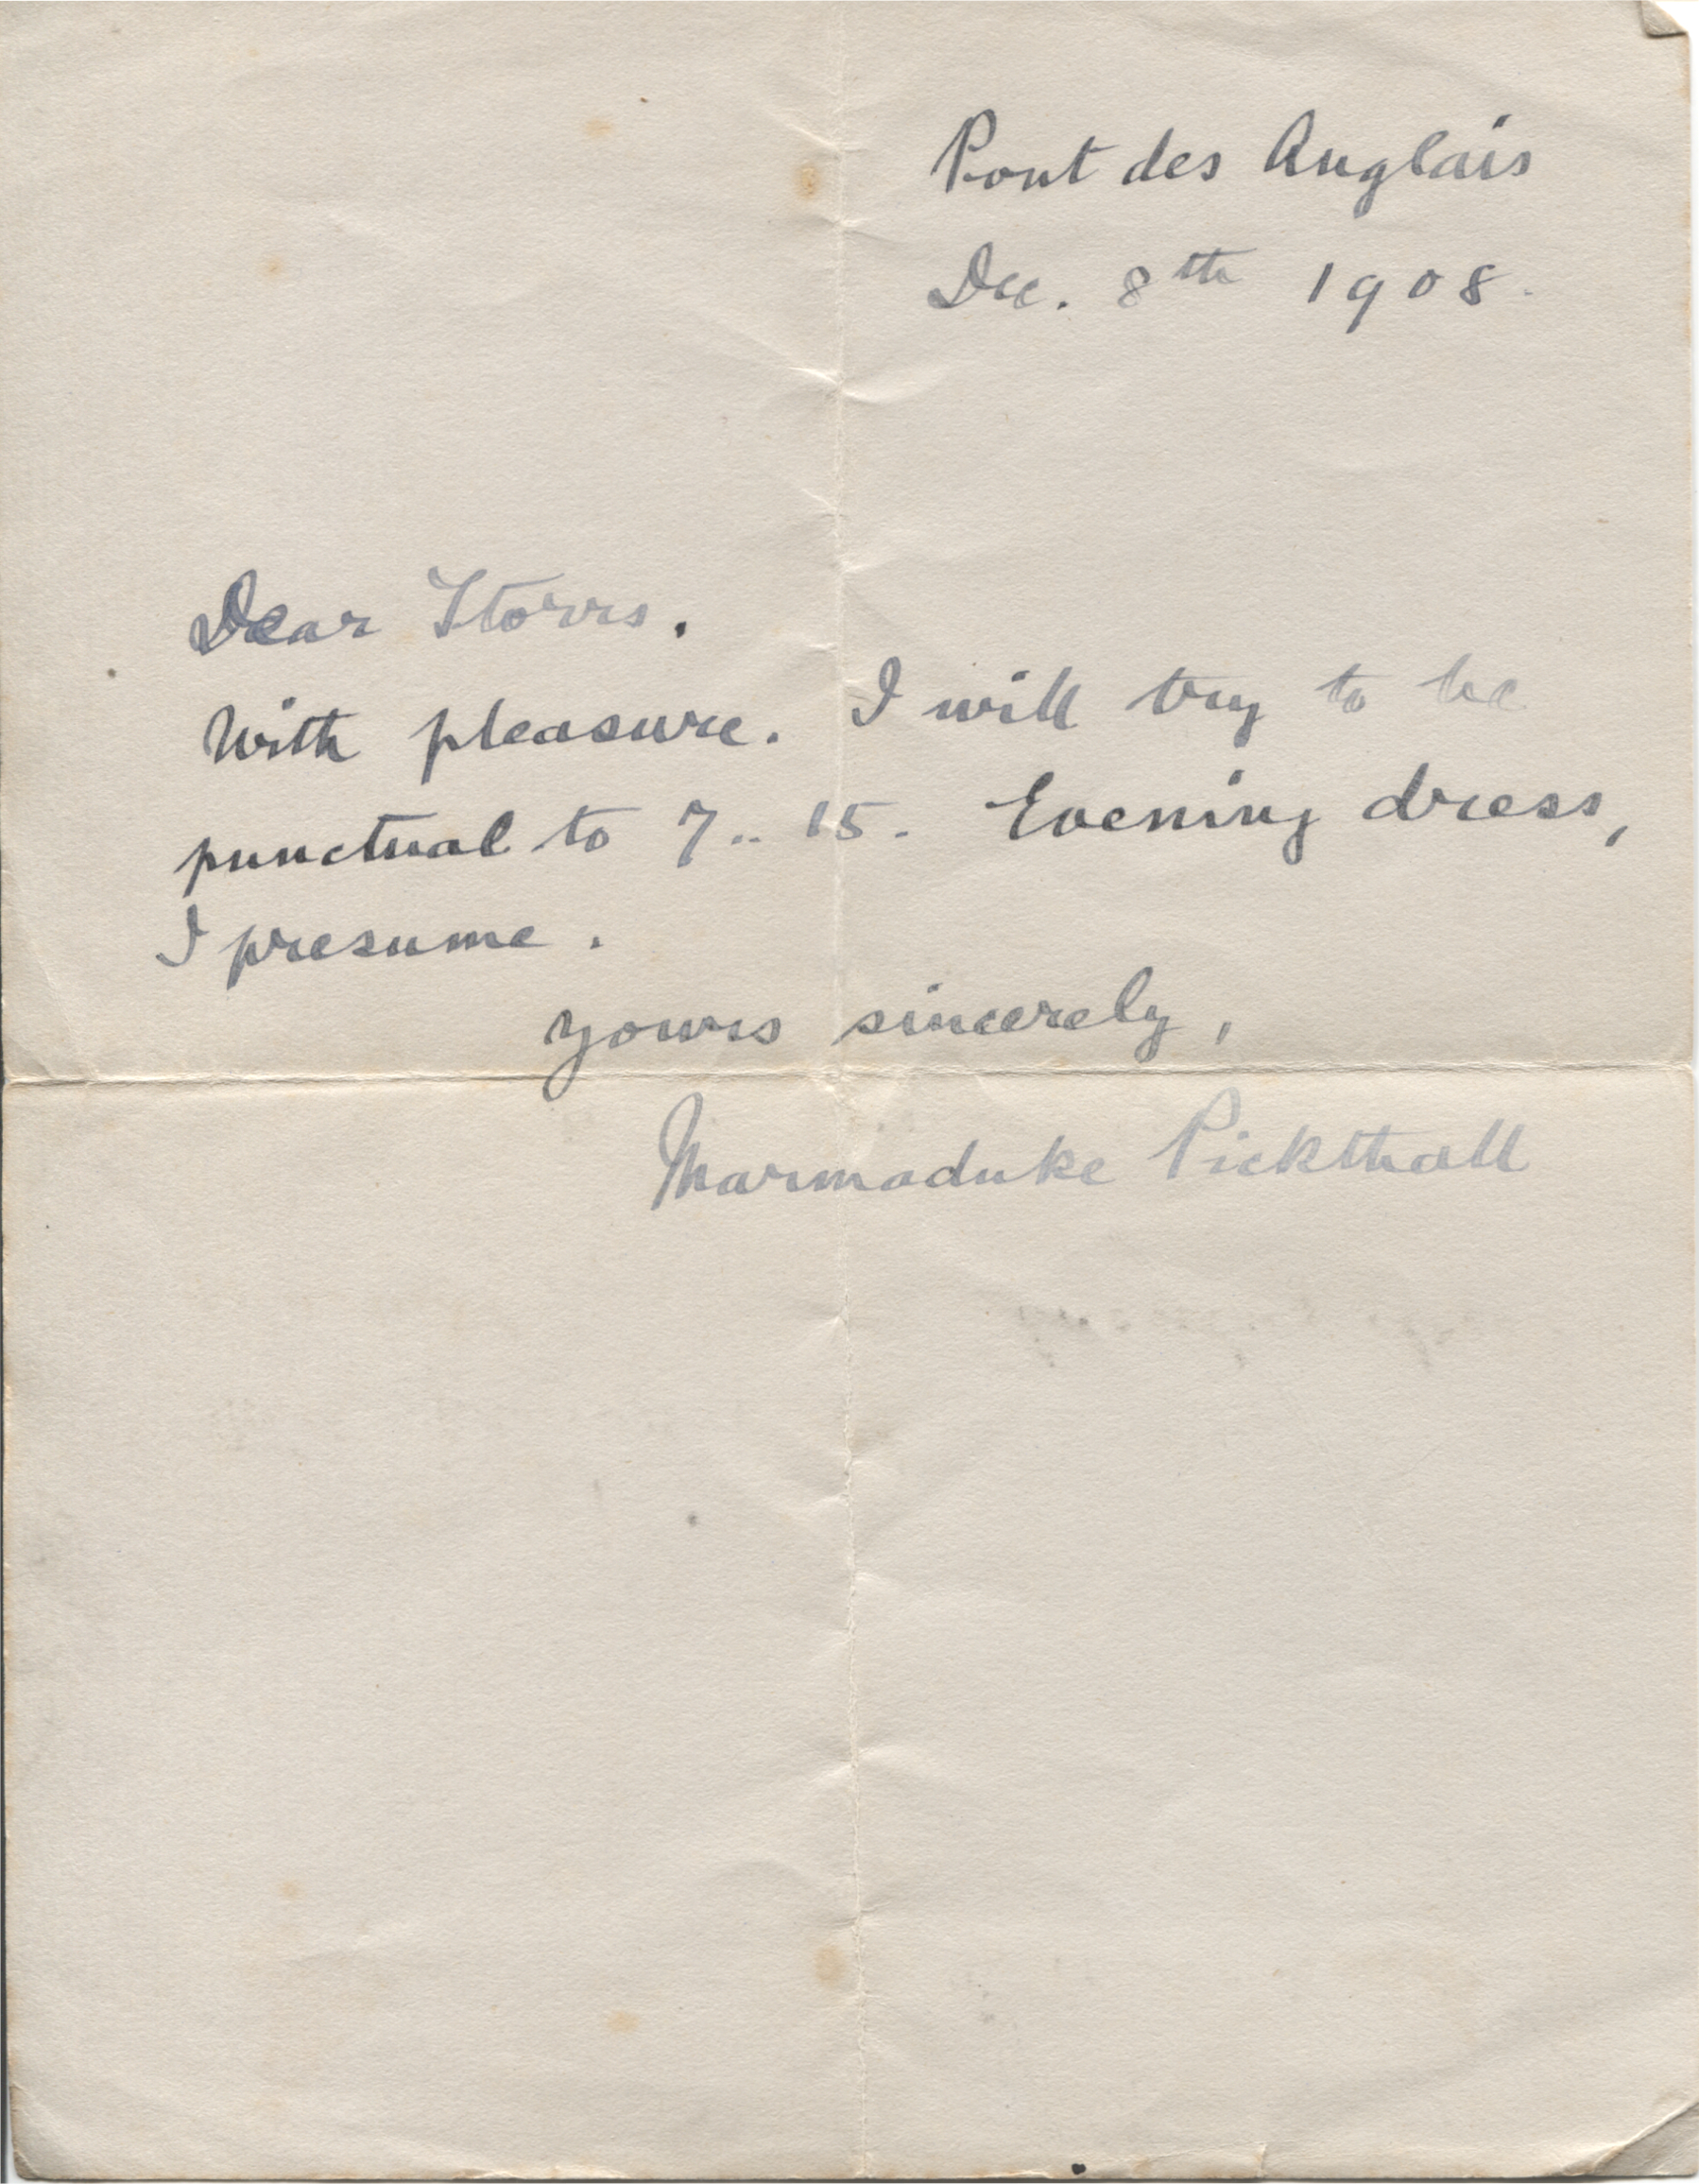 Pont des Anglais
Dec. 8th 1908.
Dear Storrs.
With pleasure. I will try to be
punctual to 7..15. Evening dress,
I presume.
Yours sincerely,
Marmaduke Pickthall